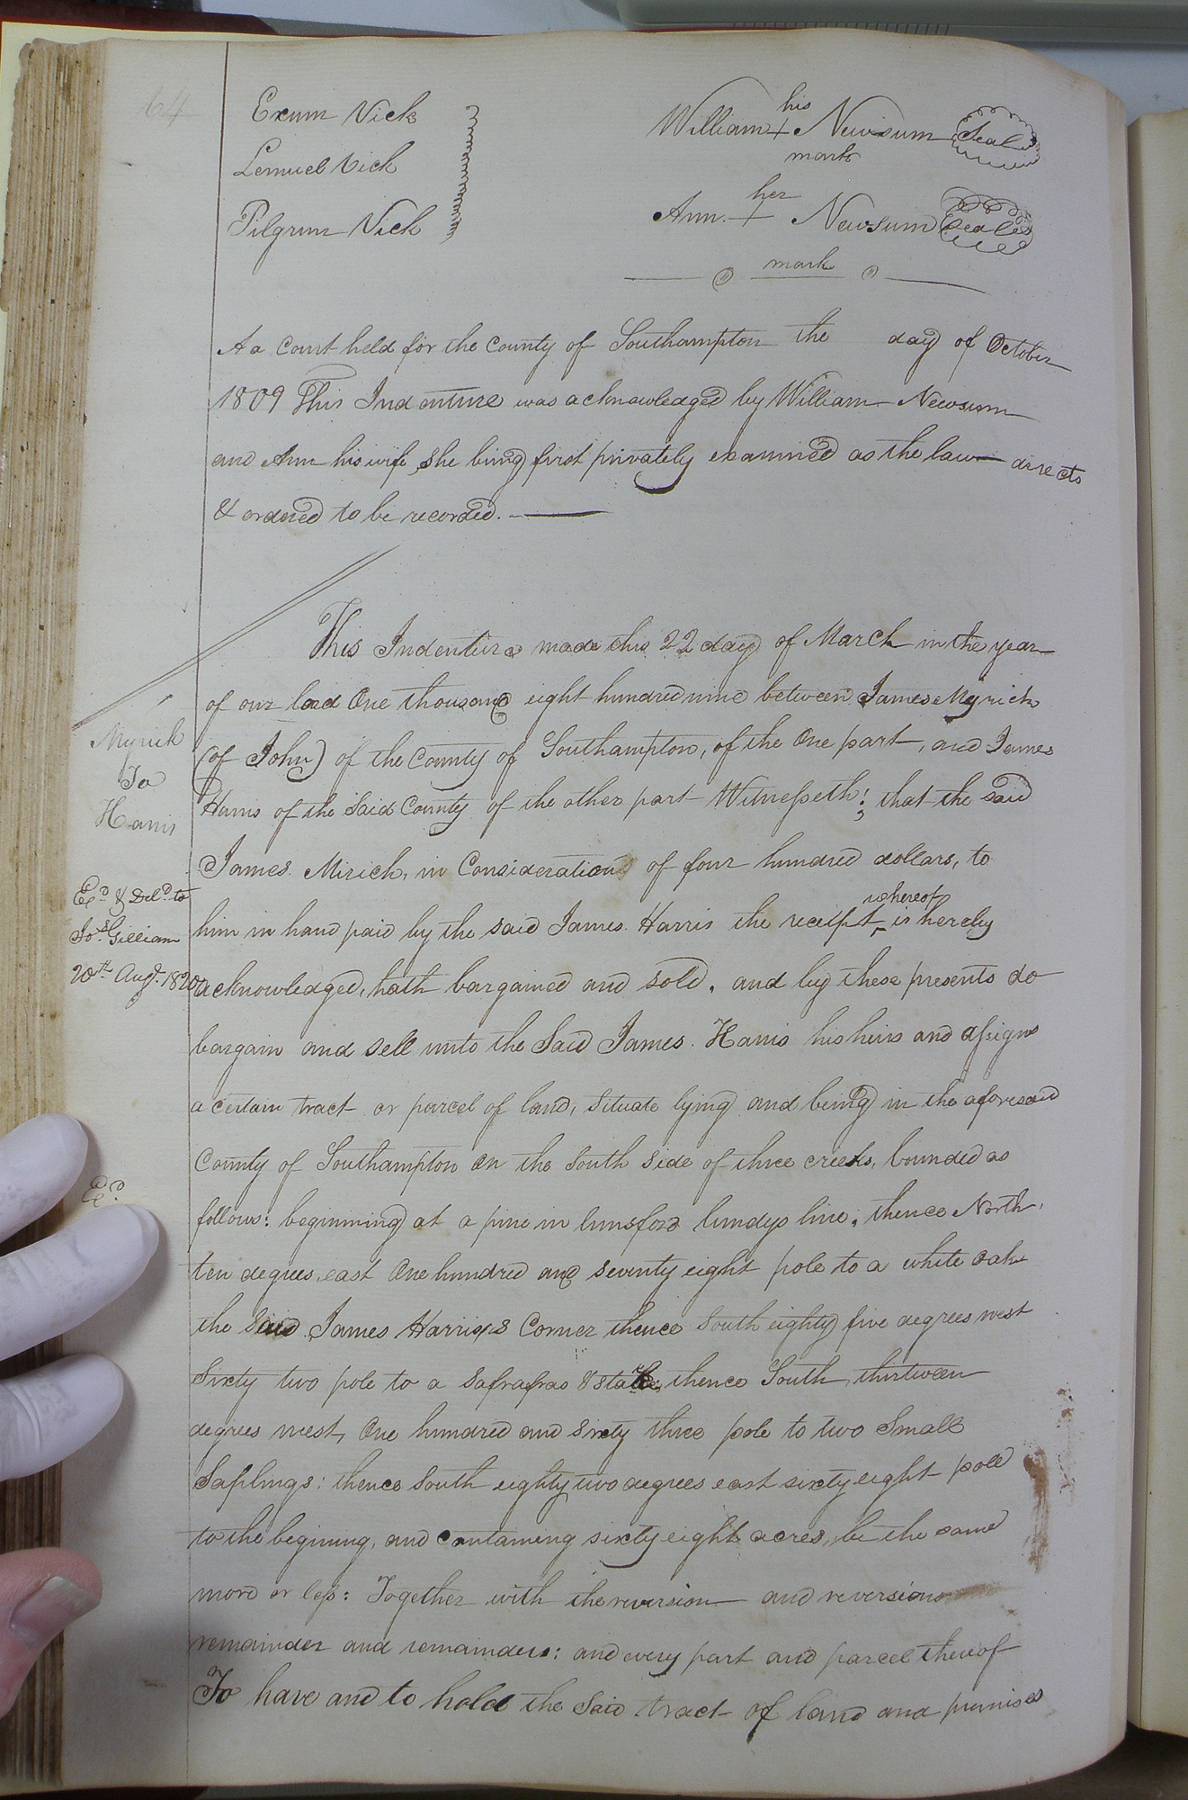 64
Exum Vick
Lemuel Vick
Pilgrum Vick
his
William + Newsum Seal
mark
her
Ann + Newsum Seal
mark
At a Court held for the County of Southampton the day of October
1809 This Indenture was acknowledged by William Newsum
and Ann his wife, she being first privately examined as the law directs
& ordered to be recorded.
This Indenture made this 22 day of March in the year
of our lord One thousand eight hundred nine between James Myrick
(of John) of the County of Southampton, of the One part, and James
Harris of the Said County of the other part Witnesseth; that the said
James Mirick, in Consideration of four hundred dollars, to
whereof
him in hand paid by the said James Harris the receipt ^ is hereby
acknowledged, hath bargained and sold, and by these presents do
bargain and Sell unto the Said James Harris his heirs and assigns
a certain tract or parcel of land, Situate lying and being in the aforesaid
County of Southampton on the South Side of three creeks, bounded as
follows: beginning at a pine in lunsford lundys line, thence North
ten degrees east One hundred and seventy eight pole to a white oak
the Said James Harriss Corner thence South eighty five degrees west
Sixty two pole to a Safrafras & stake, thence South thirtween
degrees west, One hundred and Sixty three pole to two Small
Saplings: thence South eighty two degrees east sixty eight pole
to the begining, and containing sixty eight acres, be the same
more or less: Together with the reversion and reversions
remainder and remainders: and every part and parcel thereof
To have and to hold the Said tract of land and premises
Myrick
To
Harris
Ex.d & Del.d to
Jos. Gilliam
20th Augt. 1820
Ex.d